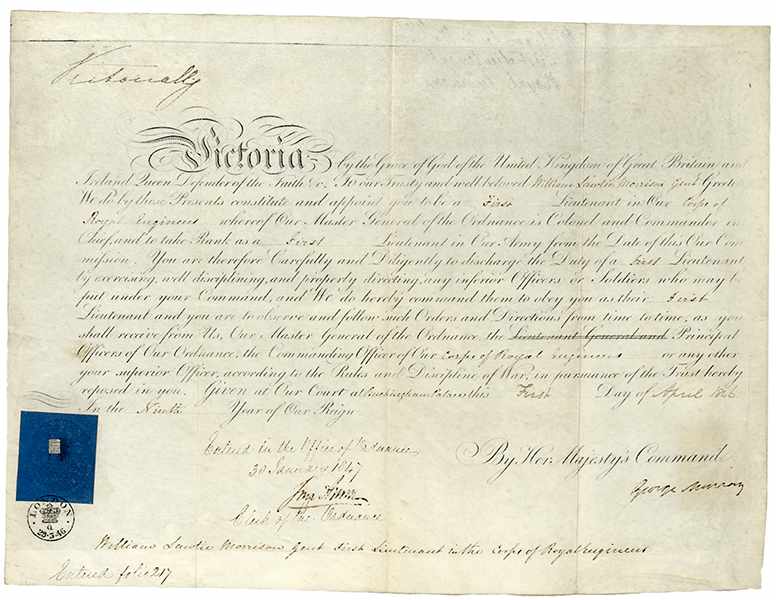 Victoria
by the Grace of God of the United Kingdom of Great Britain and
Ireland Queen Defender of the Faith &c. To our Trusty and well beloved William Lawtie Morrison Gent Greeting
We do by these Presents constitute and appoint you to be a First Lieutenant in Our Corps of
Royal Engineers whereof Our Master General of the Ordnance is Colonel and Commander in
Chief, and to take Rank as a First Lieutenant in Our Army from the Date of this Our Com
mission. You are therefore Carefully and Diligently to discharge the Duty of a First Lieutenant
by exercising, well disciplining, and properly directing, any inferior Officers or Soldiers who may be
put under your Command, and We do hereby command them to obey you as their First
Lieutenant and you are to observe and follow such Orders and Directions from time to time, as you
shall receive from Us, Our Master General of the Ordnance, the Lieutenant General and Principal
Officers of Our Ordnance, the Commanding Officer of Our Corps of Royal Engineers or any other
your superior Officer, according to the Rules and Discipline of War, in pursuance of the Trust hereby
reposed in you. Given at Our Court at Buckingham Palace this First Day of April 1846
In the Ninth Year of Our Reign.
Entered in the Office of Ordnance
30 January 1847
Clerk of the Ordnance
By Her Majesty's Command
George Murray
LONDON
29-5-46
William Lawtie Morrison Gent First Lieutenant in the Corps of Royal Engineers
Entered folio 217